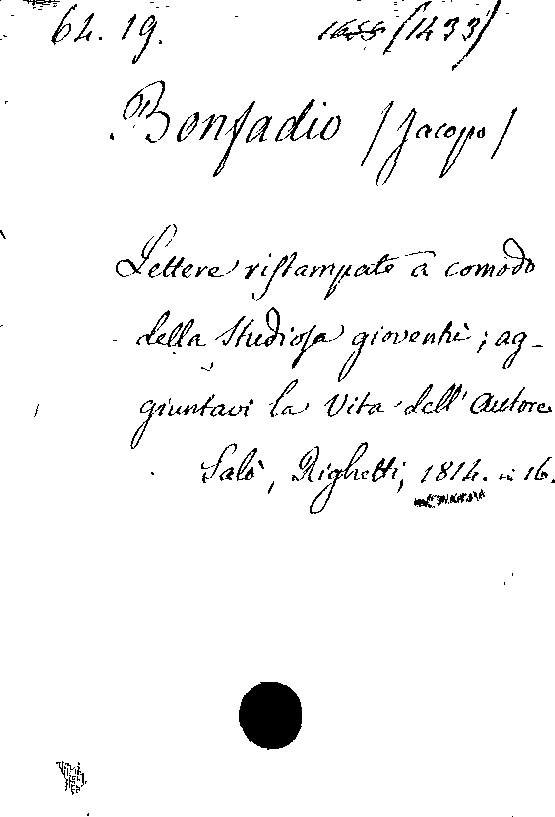 64. 19. (1433)
Bonfadio / Jacopo /
Lettere ristampate a comodo
della studiosa gioventù; ag-
giuntavi la Vita dell' Autore
Salò, Righetti, 1814. in 16.